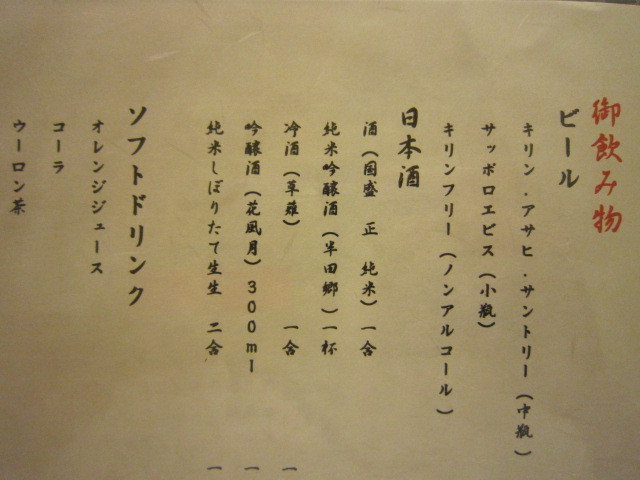 御飲み物
ビール
キリン．アサヒ．サントリー（中瓶）
サッポロエビス（小瓶）
キリンフリー（ノンアルコール）
日本酒
酒（国盛　正　純米）一合
純米吟醸酒（半田郷）一杯
冷酒（草薙）　一合　一
吟醸酒（花風月）３００ｍｌ　一
純米しぼりたて生生　二合　一
ソフトドリンク
オレンジジュース
コーラ
ウーロン茶